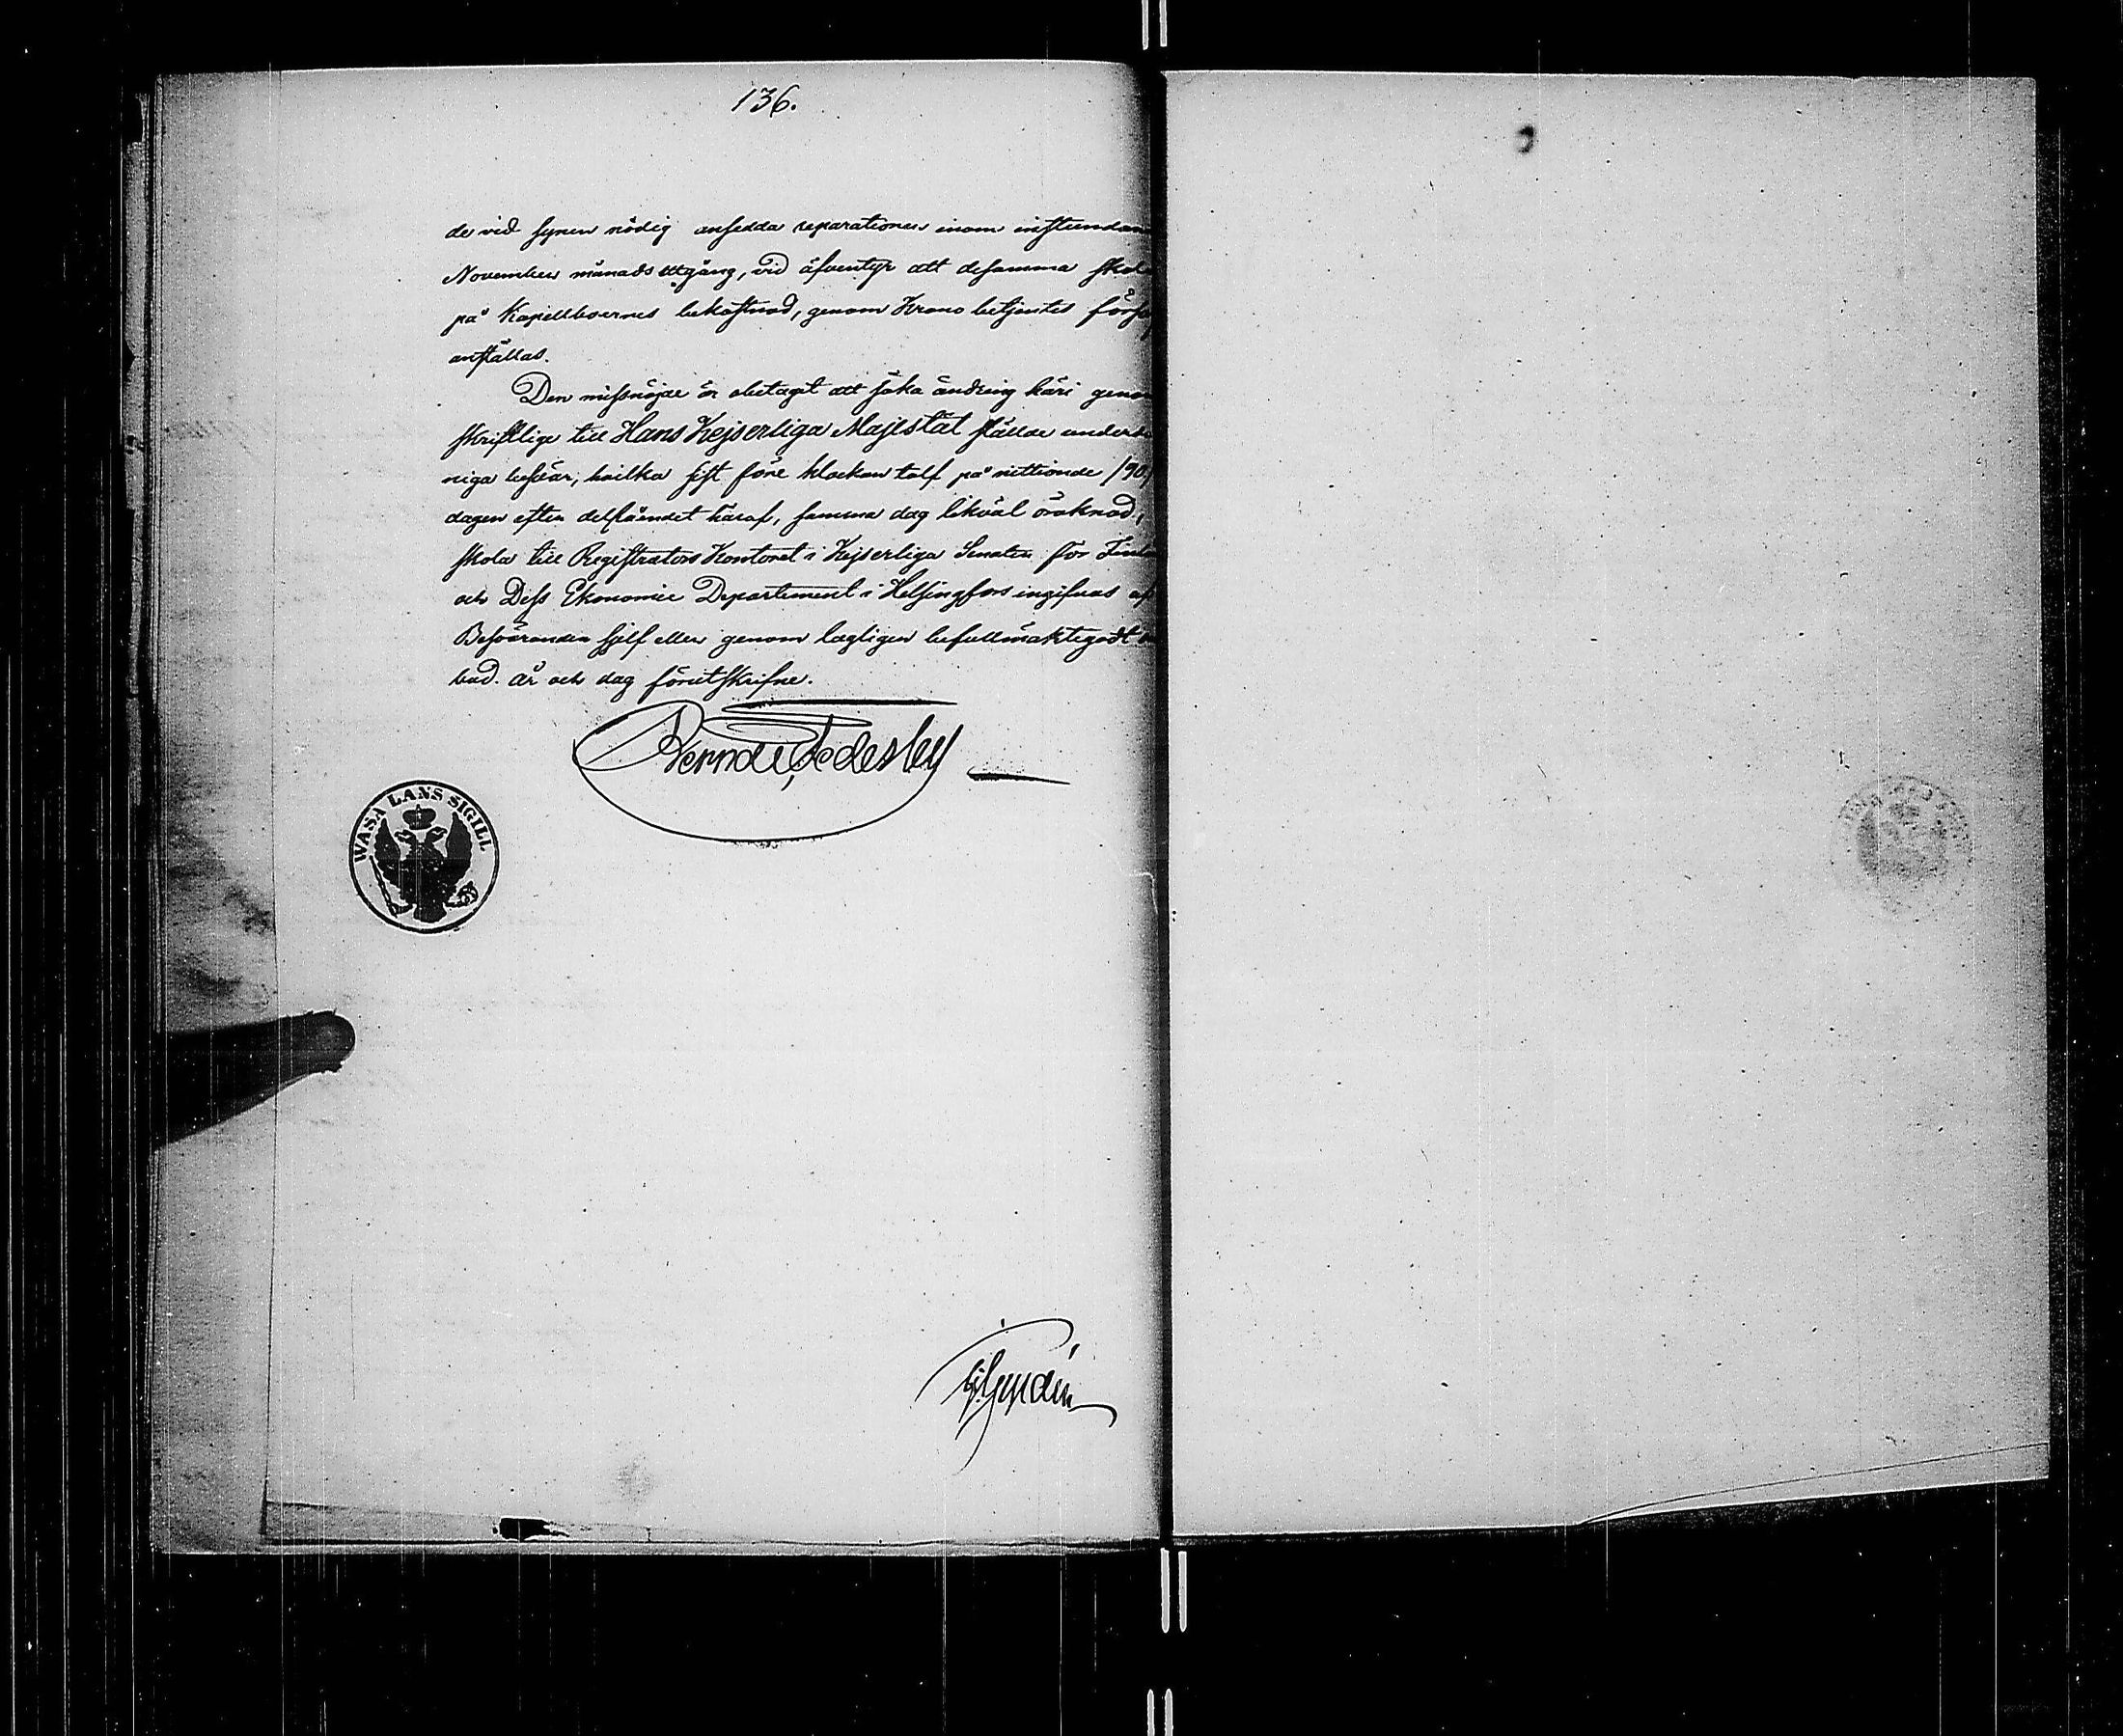 136.
de vid synen nödig ansedda reparationer inom instundan
November månads utgång, vid äfventyr att desamma skola
på Kapellboernes bekostnad, genom Krono betjentes förs
anställas.
Den missnöjde är obetaget att söka ändring häri genom
skriftlige till Hans Kejserliga Majestät stälde underdå
niga besvär, hvilka sist före klockan tolf på nittionde /90/
dagen efter delfåendet häraf, samma dag likväl oräknad,
skola till Registrators Kontoret i Kejserliga Senaten för Finla
och Dess Ekonomie Departement i Helsingfors ingifvas af
Besväranden sjelf eller genom lagligen befullmäktigadt
bud. År och dag förutskrifne.
WASA LÄNS SIGILL